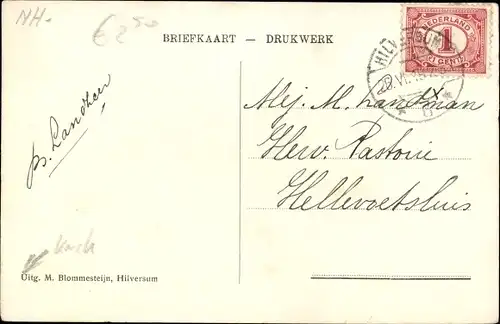 NH-
6250
BRIEFKAART — DRUKWERK
NEDERLAND
1
CENT
Mej. M. Landman
Herv. Pastorie
Hellevoetsluis
Kerk
Uitg. M. Blommesteijn, Hilversum